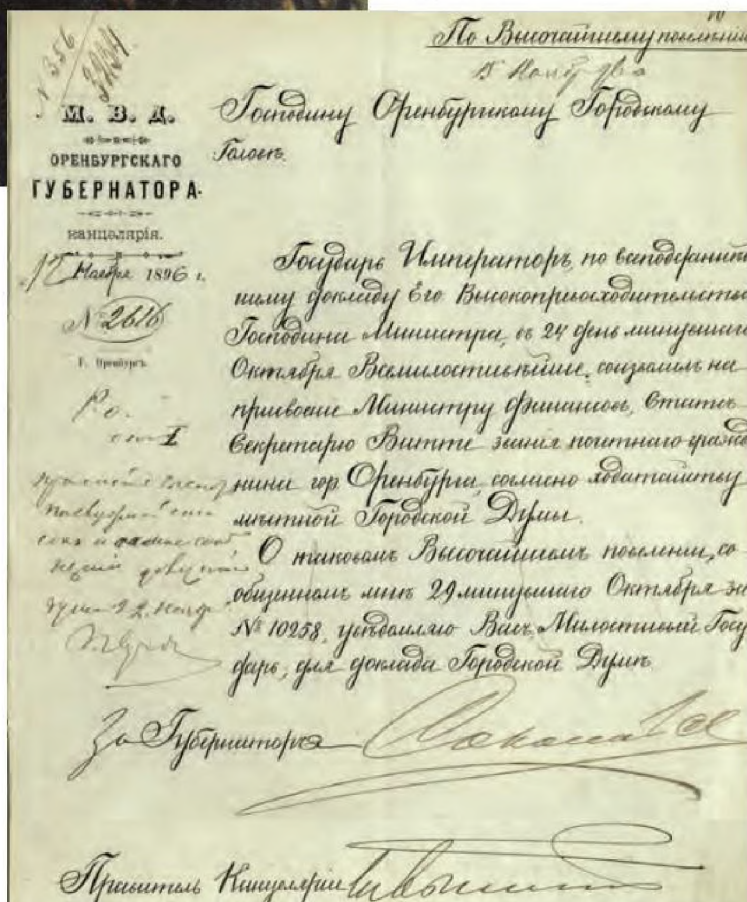 N 356
По Высочайшему повелѣнію
М. В. Д.
ОРЕНБУРГСКАГО
ГУБЕРНАТОРА.
КАНЦЕЛЯРІЯ.
Ноября 1896 г.
№ 2616
Г. Оренбургъ
Господину Оренбургскому Городскому
Головѣ.
Государь Императоръ, по всеподданнѣй
шему докладу Его Высокопревосходительства
Господина Министра, въ 24 день минувшаго
Октября Всемилостивѣйше соизволилъ на
присвоеніе Министру Финансовъ, Статсъ
Секретарю Витте званія почетнаго гражда
нина гор. Оренбурга, согласно ходатайству
мѣстной Городской Думы.
О таковомъ Высочайшемъ повелѣніи, со
общенномъ мнѣ 29 минувшаго Октября за
№ 10258, увѣдомляю Васъ, Милостивый Госу
дарь, для доклада Городской Думѣ.
За Губернатора
Правитель Канцеляріи